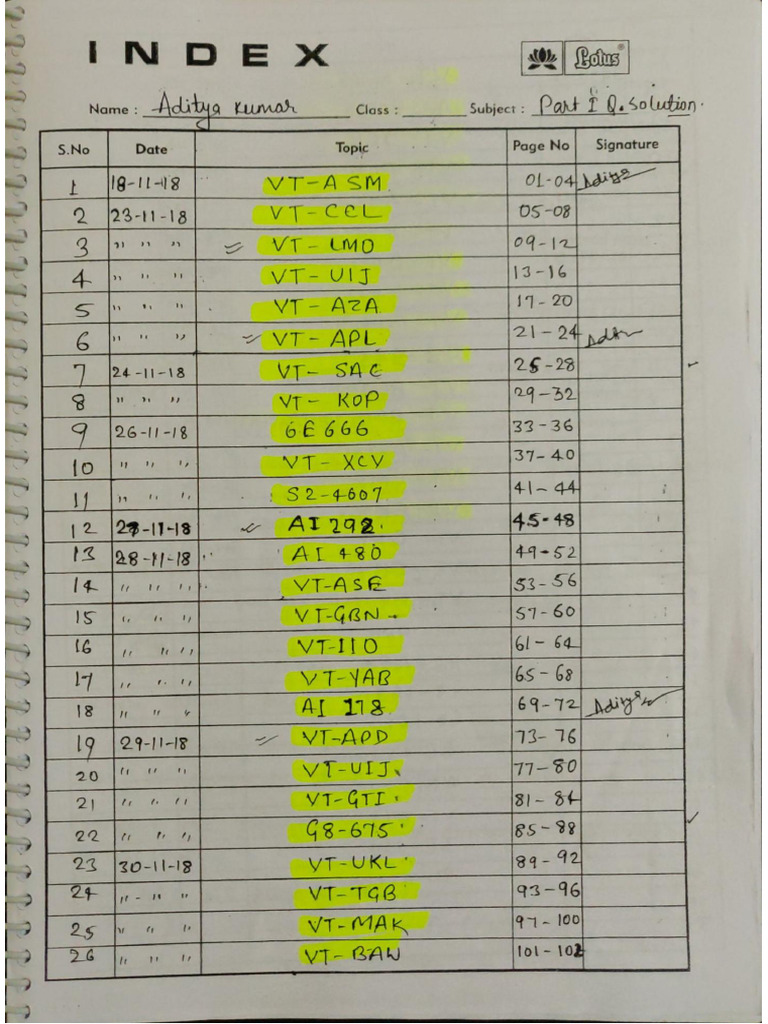 INDEX
Lotus®
Name : Aditya Kumar Class : Subject : Part I Q. Solution.
S.No Date Topic Page No Signature
1 18-11-18 VT-ASM 01-04 Aditya
2 23-11-18 VT-CCL 05-08
3 " " " = VT-LMO 09-12
4 " " " VT-UIJ 13-16
5 " " " VT-AZA 17-20
6 " " " = VT-APL 21-24
7 24-11-18 VT-SAC 25-28 ✓
8 " " " VT-KOP 29-32
9 26-11-18 6E666 33-36
10 " " " VT-XCV 37-40
11 " " " S2-4607 41-44
12 27-11-18 AI 292 45-48
13 28-11-18 AI 480 49-52
14 " " " VT-ASE 53-56
15 " " " VT-GBN 57-60
16 " " " VT-IIO 61-64
17 " " " VT-YAB 65-68
18 " " " AI 178 69-72 Aditya
19 29-11-18 = VT-APD 73-76
20 " " " VT-UIJ 77-80
21 " " " VT-GTI 81-84
22 " " " G8-675 85-88 ✓
23 30-11-18 VT-UKL 89-92
24 " - " " VT-TGB 93-96
25 " " " VT-MAK 97-100
26 " " " VT-BAW 101-102